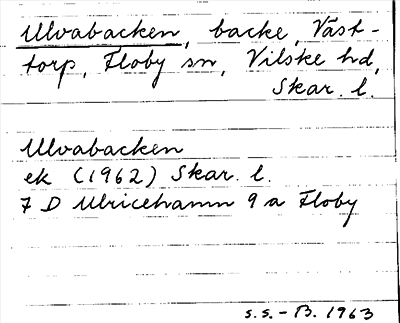 Ulvabacken, backe, Väst-
torp, Floby sn, Vilske hd,
Skar. l.
Ulvabacken
ek (1962) Skar. l.
7 D Ulricehamn 9 a Floby
S.S. - B. 1963